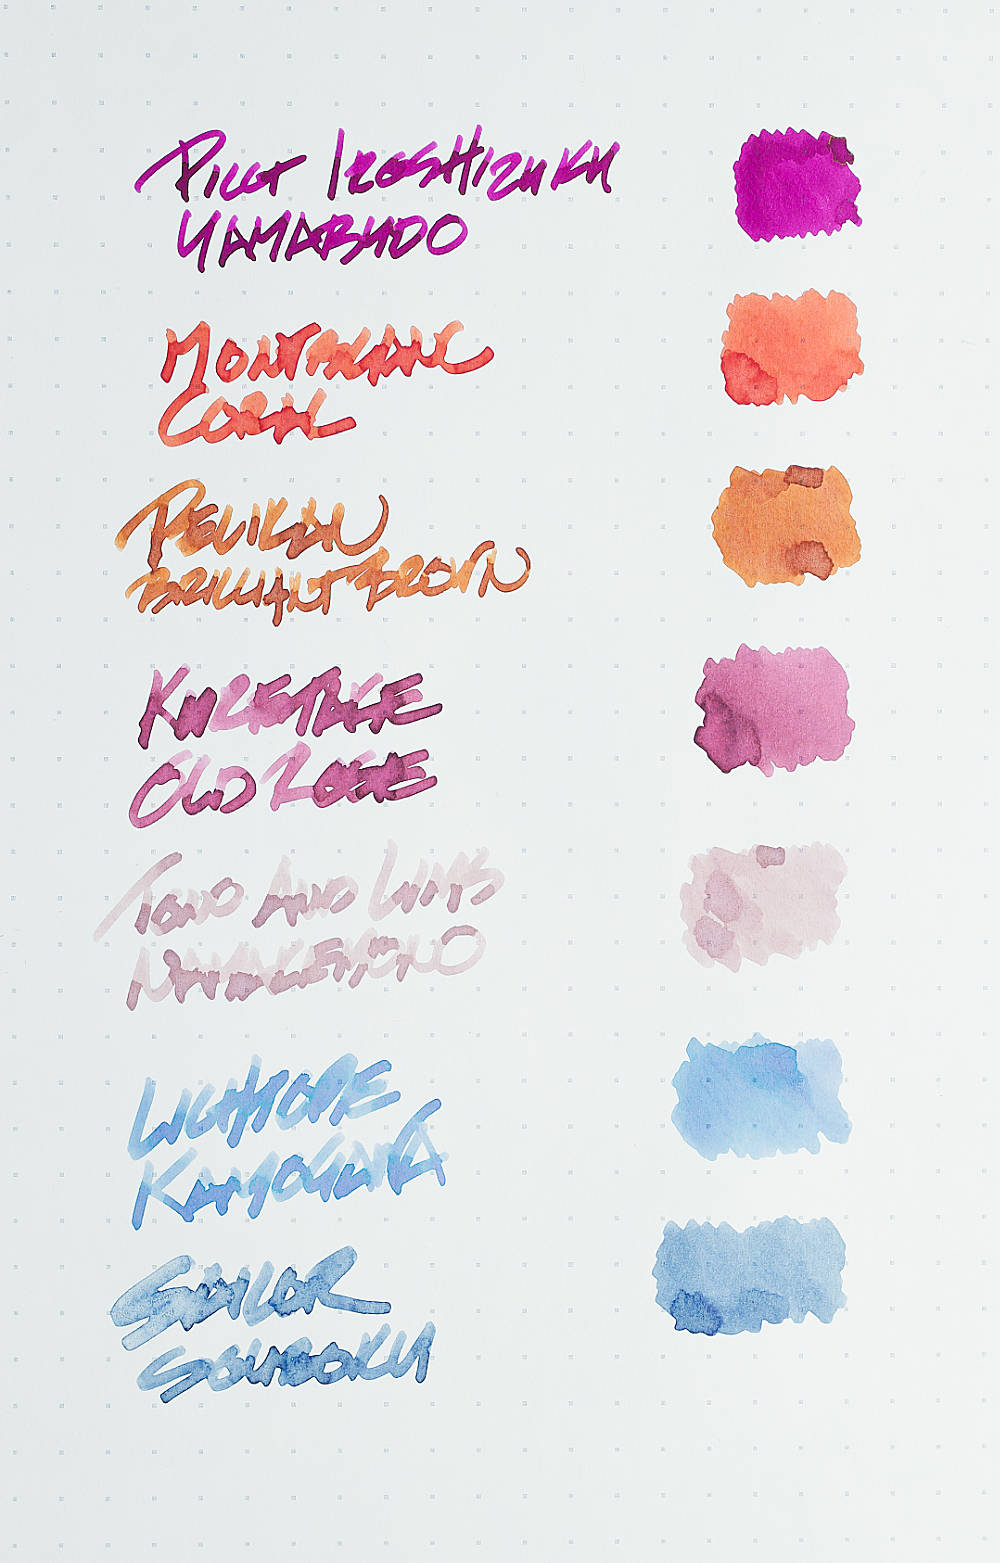 PILOT IROSHIZUKU
YAMABUDO
MONTBLANC
CORAL
PELIKAN
BRILLIANT BROWN
KURETAKE
OLD ROSE
TONO AND LIMS
LICHTOPE
KAMOGAWA
SAILOR
SOUBOKU